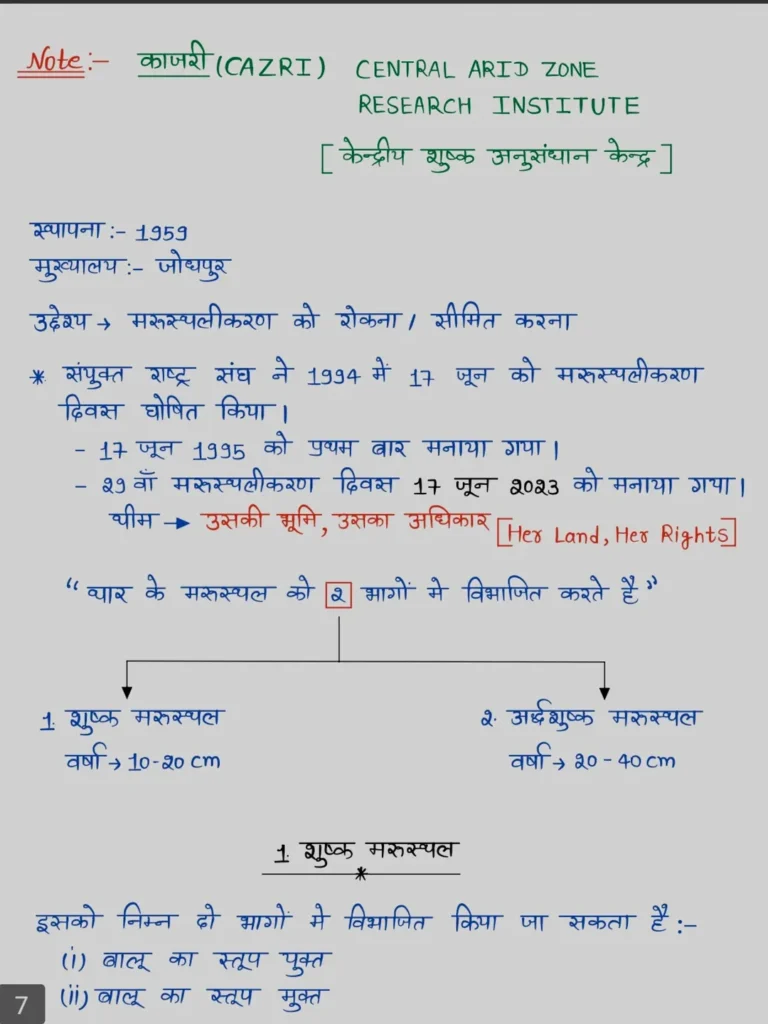 Note:- काजरी (CAZRI) CENTRAL ARID ZONE
RESEARCH INSTITUTE
[केन्द्रीय शुष्क अनुसंधान केन्द्र]
स्थापना :- 1959
मुख्यालय:- जोधपुर
उद्देश्य → मरुस्थलीकरण को रोकना / सीमित करना
* संयुक्त राष्ट्र संघ ने 1994 में 17 जून को मरुस्थलीकरण
दिवस घोषित किया।
- 17 जून 1995 को प्रथम बार मनाया गया।
- 29 वाँ मरुस्थलीकरण दिवस 17 जून 2023 को मनाया गया।
थीम → उसकी भूमि, उसका अधिकार [Her Land, Her Rights]
“थार के मरुस्थल को २ भागों मे विभाजित करते है”
1. शुष्क मरुस्थल
वर्षा → 10-20 cm
२. अर्द्धशुष्क मरुस्थल
वर्षा → 20 - 40 cm
1. शुष्क मरुस्थल
*
इसको निम्न दो भागों मे विभाजित किया जा सकता है :-
(i) बालू का स्तूप युक्त
(ii) बालू का स्तूप मुक्त
7